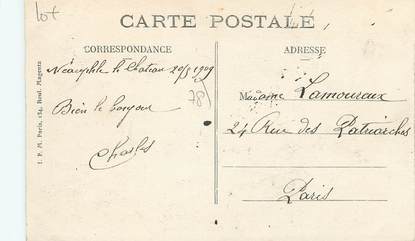 lot
CARTE POSTALE
CORRESPONDANCE
ADRESSE
Néauphle le Château 20/3 1909
78
Bien le bonjour
Charles
Madame Lamoureux
24 Rue des Patriarches
Paris
I. P. M. Paris, 134, Boul. Magenta